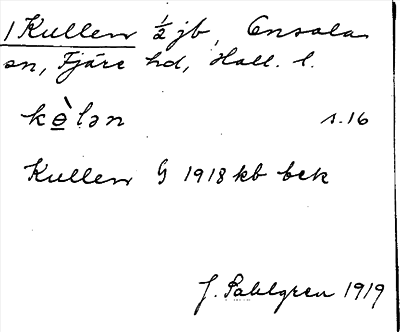 1 Kullen ½ jb, Onsala
sn, Fjäre hd, Hall. l.
kè̱lən s.16
Kullen G 1918 kb bek
J. Sahlgren 1919